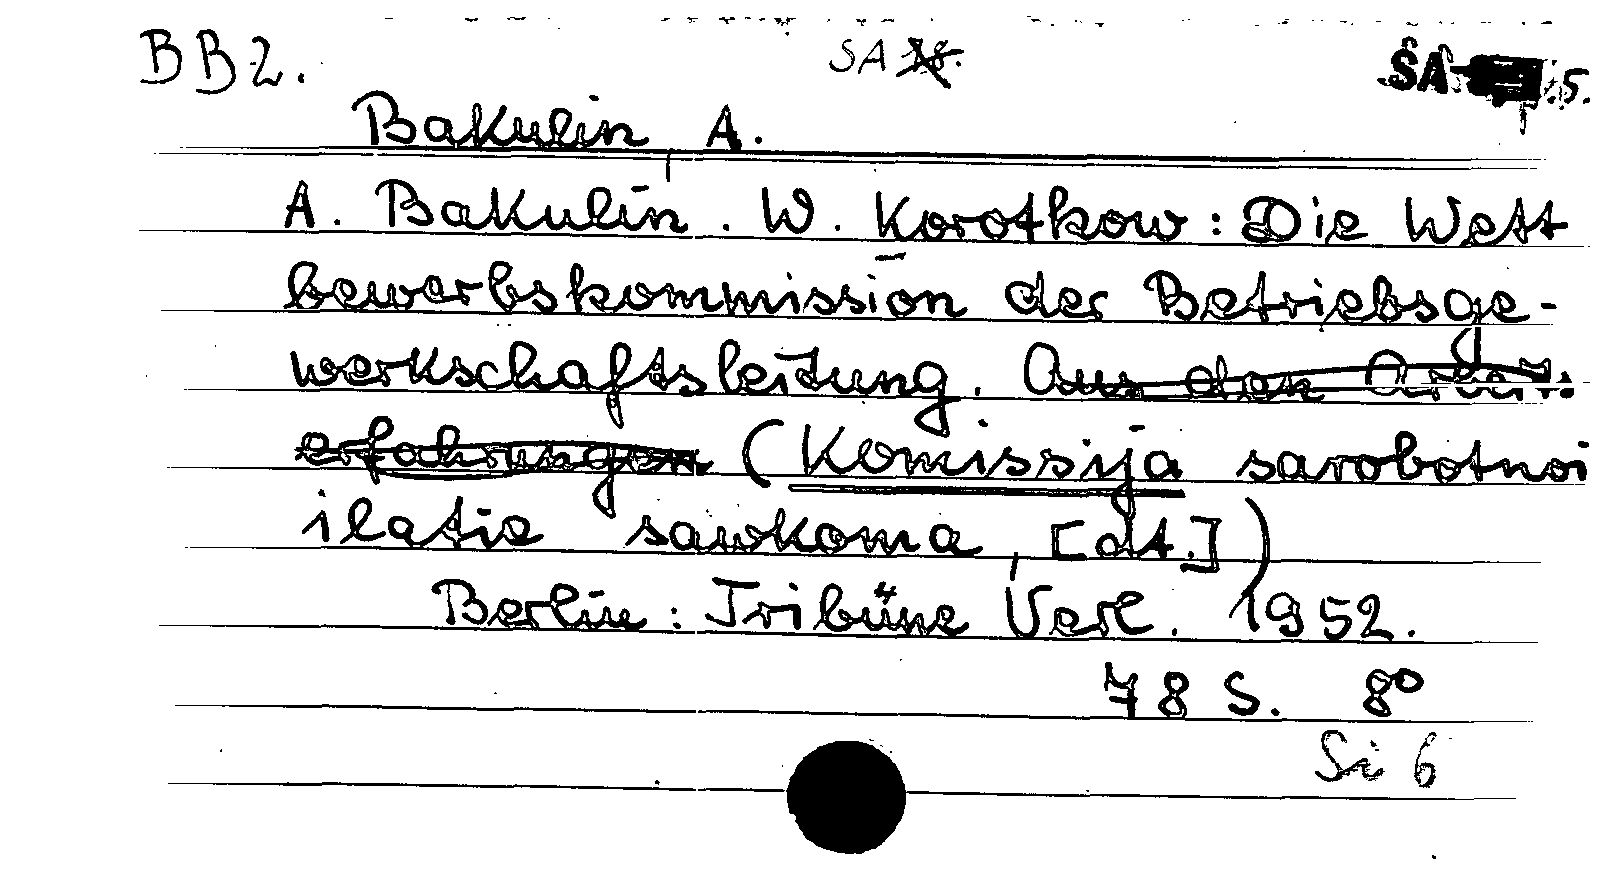 BB2. SA SA 5.
Bakulin, A.
A. Bakulin. W. Korotkow: Die Wett
bewerbskommission der Betriebsge-
werkschaftsleitung. Aus den Arbeits
erfahrungen (Komissija sarobotnoi
ilatie sawkoma, [dt.])
Berlin: Tribüne Verl. 1952.
78 S. 8°
Si 6